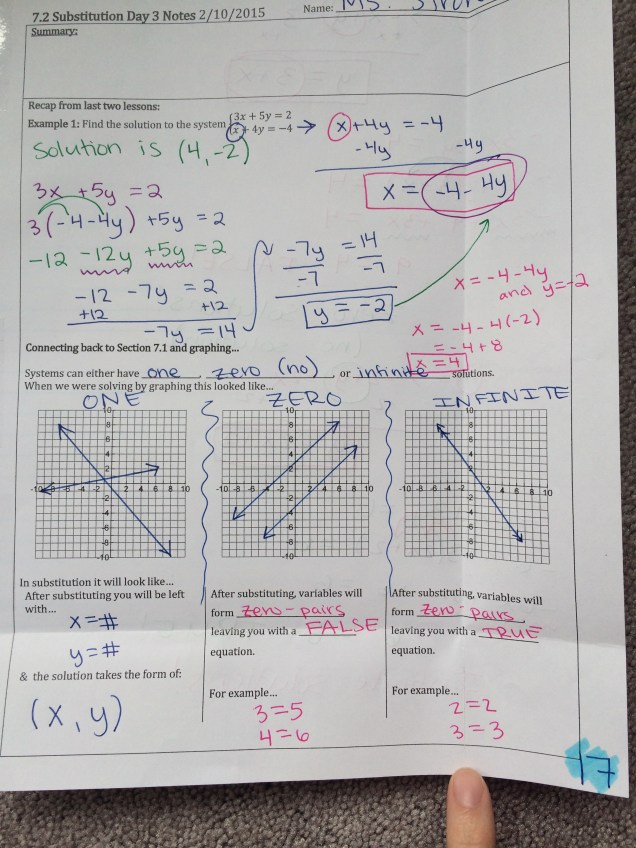 7.2 Substitution Day 3 Notes 2/10/2015
Name: Ms.
Summary:
Recap from last two lessons:
Example 1: Find the solution to the system { 3x + 5y = 2
x + 4y = −4 → x + 4y = -4
-4y -4y
x = -4 - 4y
Solution is (4, -2)
3x + 5y = 2
3(-4-4y) + 5y = 2
-12 -12y +5y = 2
-12 -7y = 2
+12 +12
-7y = 14
-7y = 14
-7 -7
y = -2
x = -4-4y
and y=-2
x = -4-4(-2)
= -4+8
x = 4
Connecting back to Section 7.1 and graphing...
Systems can either have one, zero (no), or infinite solutions.
When we were solving by graphing this looked like...
ONE
10
8
6
4
2
-10 -8 -6 -4 -2 2 4 6 8 10
-2
-4
-6
-8
-10
ZERO
10
8
6
4
2
-10 -8 -6 -4 -2 2 4 6 8 10
-2
-4
-6
-8
-10
INFINITE
10
8
6
4
2
-10 -8 -6 -4 -2 2 4 6 8 10
-2
-4
-6
-8
-10
In substitution it will look like...
After substituting you will be left
with...
x = #
y = #
& the solution takes the form of:
(x, y)
After substituting, variables will
form zero-pairs
leaving you with a FALSE
equation.
For example...
3=5
4=6
After substituting, variables will
form zero-pairs
leaving you with a TRUE
equation.
For example...
2=2
3=3
17